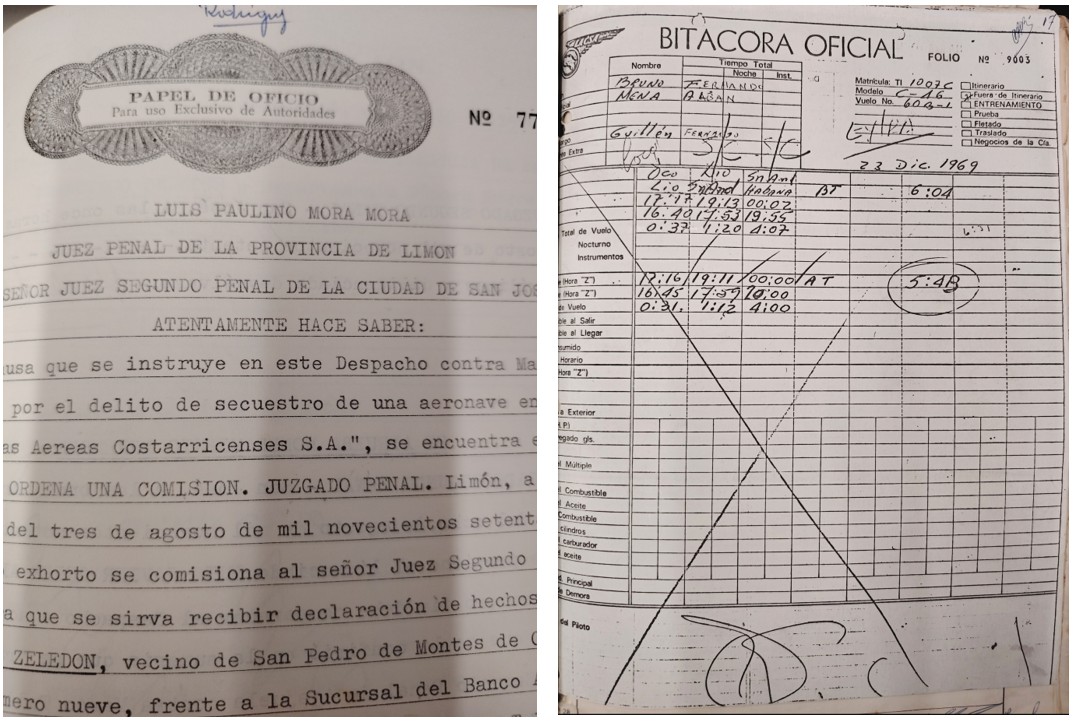 Rodriguy
PAPEL DE OFICIO
Para uso Exclusivo de Autoridades
Nº 77
LUIS PAULINO MORA MORA
JUEZ PENAL DE LA PROVINCIA DE LIMON
SEÑOR JUEZ SEGUNDO PENAL DE LA CIUDAD DE SAN JOS
ATENTAMENTE HACE SABER:
usa que se instruye en este Despacho contra Ma
por el delito de secuestro de una aeronave en
as Aereas Costarricenses S.A.", se encuentra e
ORDENA UNA COMISION. JUZGADO PENAL. Limón, a
del tres de agosto de mil novecientos setent
exhorto se comisiona al señor Juez Segundo
a que se sirva recibir declaración de hechos
ZELEDON, vecino de San Pedro de Montes de O
mero nueve, frente a la Sucursal del Banco A
17
BITACORA OFICIAL
FOLIO Nº 9003
Nombre
Tiempo Total
Noche Inst.
BRUNO FERNANDO
MENA ALBAN
Guillén FERNANDO
Extra
Matrícula: TI 1007C
Modelo C-46
Vuelo No.
Itinerario
Fuera de Itinerario
ENTRENAMIENTO
Prueba
Fletado
Traslado
Negocios de la Cía.
23 Dic. 1969
OCO LIO SnAnd
LIO SnAnd HABANA BT 6:04
17:17 19:13 00:02
16:40 17:53 19:55
0:37 1:20 4:07
Total de Vuelo
Nocturno
Instrumentos
(Hora "Z") 17:16 19:11 00:00 AT 5:43
(Hora "Z") 16:45 17:59 20:00
de Vuelo 0:31 1:12 4:00
ble al Salir
ble al Llegar
sumido
Horario
Hora "Z")
a Exterior
.P.)
egado gls.
l Múltiple
Combustible
Aceite
Combustible
cilindros
carburador
aceite
. Principal
Demora
del Piloto